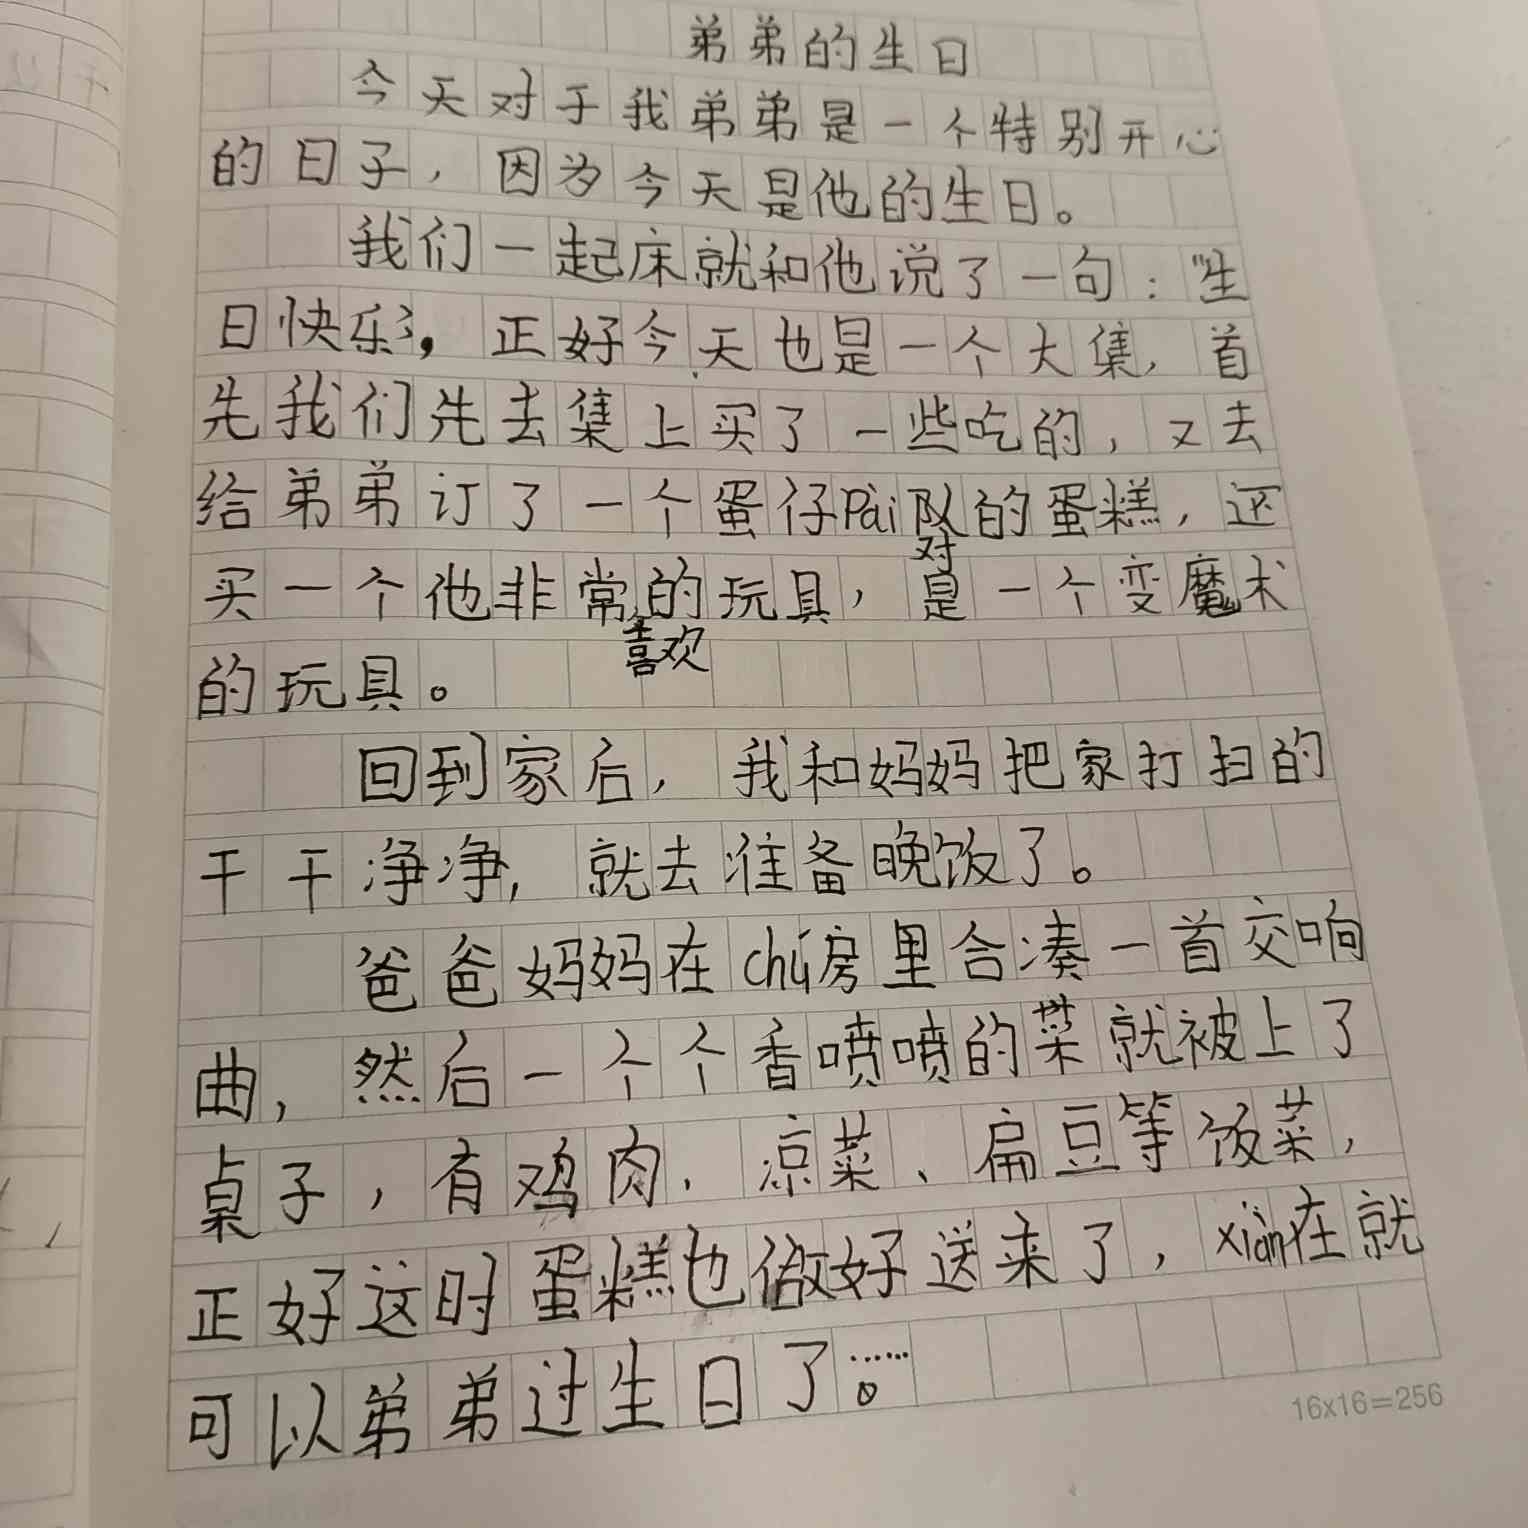 弟弟的生日
今天对于我弟弟是一个特别开心
的日子，因为今天是他的生日。
我们一起床就和他说了一句："生
日快乐"，正好今天也是一个大集，首
先我们先去集上买了一些吃的，又去
给弟弟订了一个蛋仔Pài队的蛋糕，还
对
买一个他非常的玩具，是一个变魔术
喜欢
的玩具。
回到家后，我和妈妈把家打扫的
干干净净，就去准备晚饭了。
爸爸妈妈在chú房里合凑一首交响
曲，然后一个个香喷喷的菜就被上了
桌子，有鸡肉、凉菜、扁豆等饭菜，
正好这时蛋糕也做好送来了，xiàn在就
可以弟弟过生日了……。
16x16=256